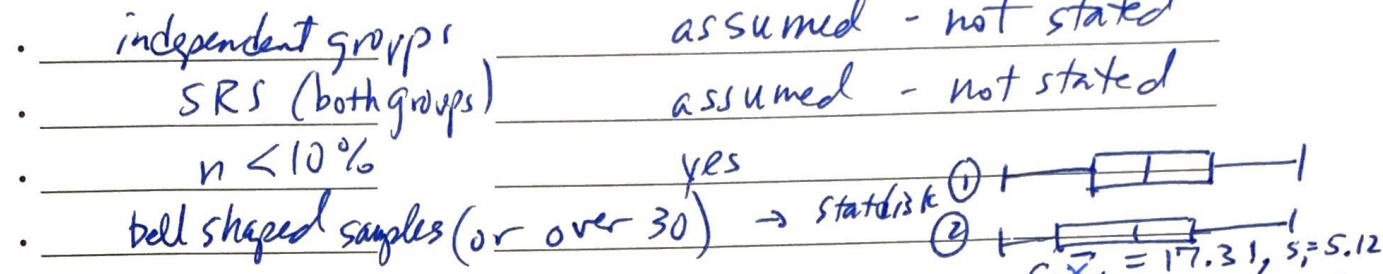 • independent groups assumed - not stated
• SRS (both groups) assumed - not stated
• n < 10% yes
• bell shaped samples (or over 30) → statdisk ①
②
x̄₁ = 17.31, s₁ = 5.12